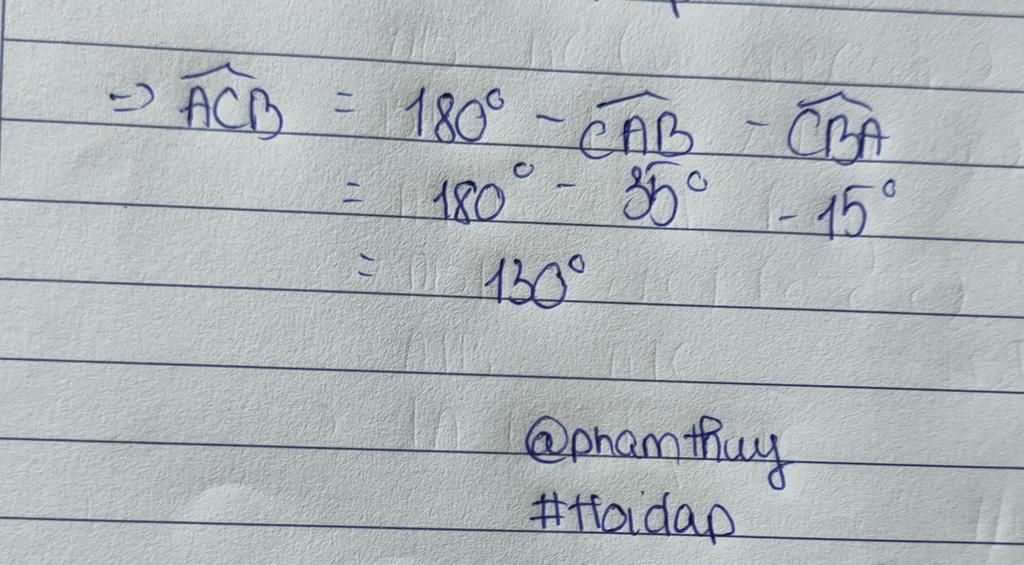 => ACB = 180° - CAB - CBA
= 180° - 35° - 15°
= 130°
@phamthuy
#Hoidap